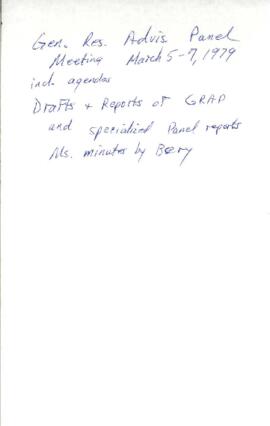 Gen. Res. Advis. Panel
Meeting March 5-7, 1979
incl. agendas
Drafts + Reports of GRAP
and specialized Panel reports
Ms. minutes by Bery